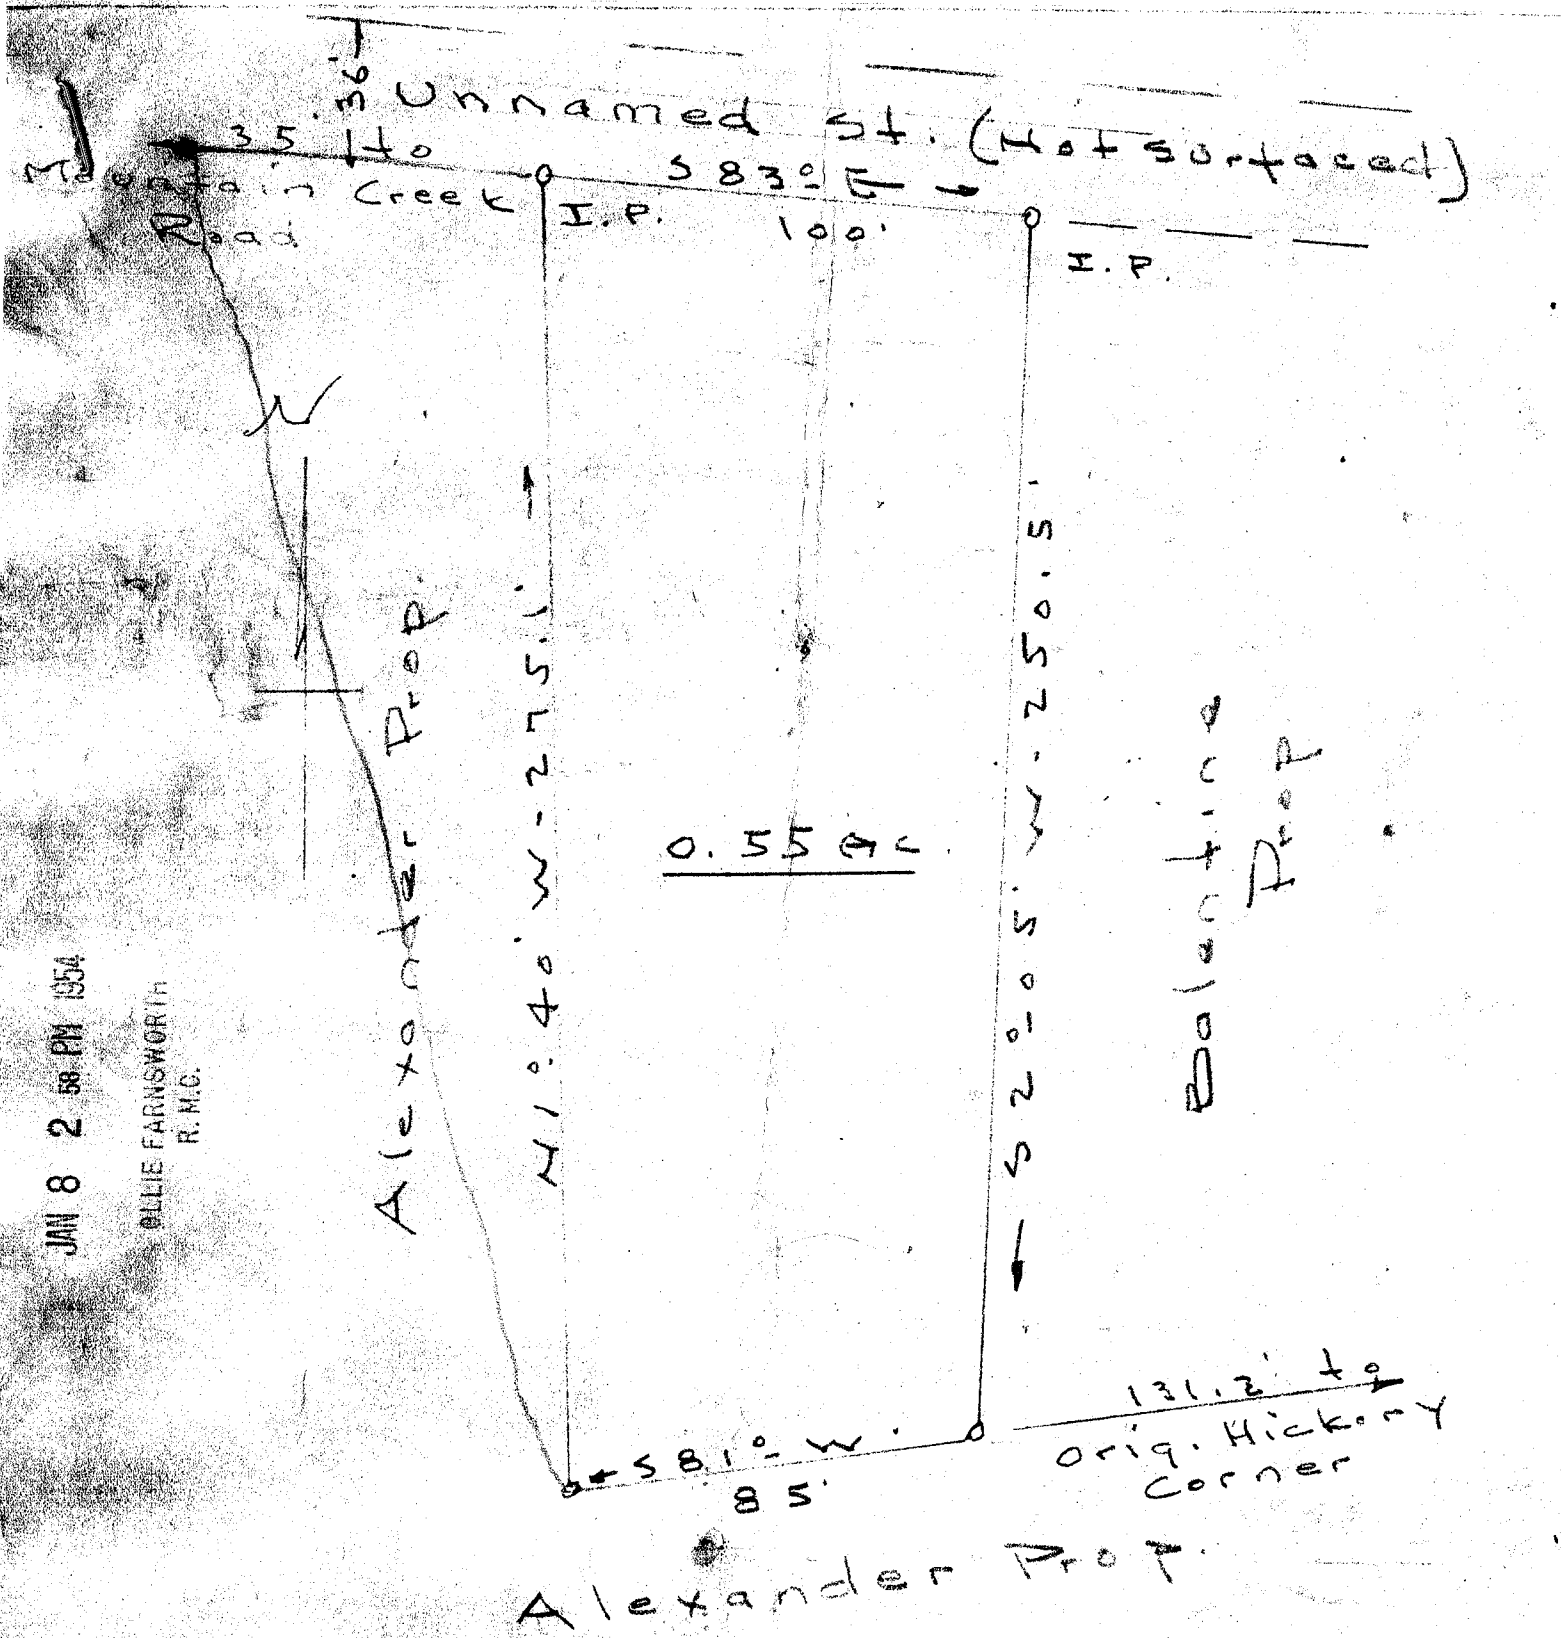 36'
Unnamed St. (Not surfaced)
35' to
Mountain Creek
Road
S 83° E
100'
I.P.
I.P.
N
Alexander Prop.
N 1° 40' W - 275.1'
0.55 ac.
S 2° - 05' W - 250.5'
Balantine
Prop
JAN 8 2 58 PM 1954
OLLIE FARNSWORTH
R. M.C.
S 81° W.
85'
131.2' to
Orig. Hickory
Corner
Alexander Prop.